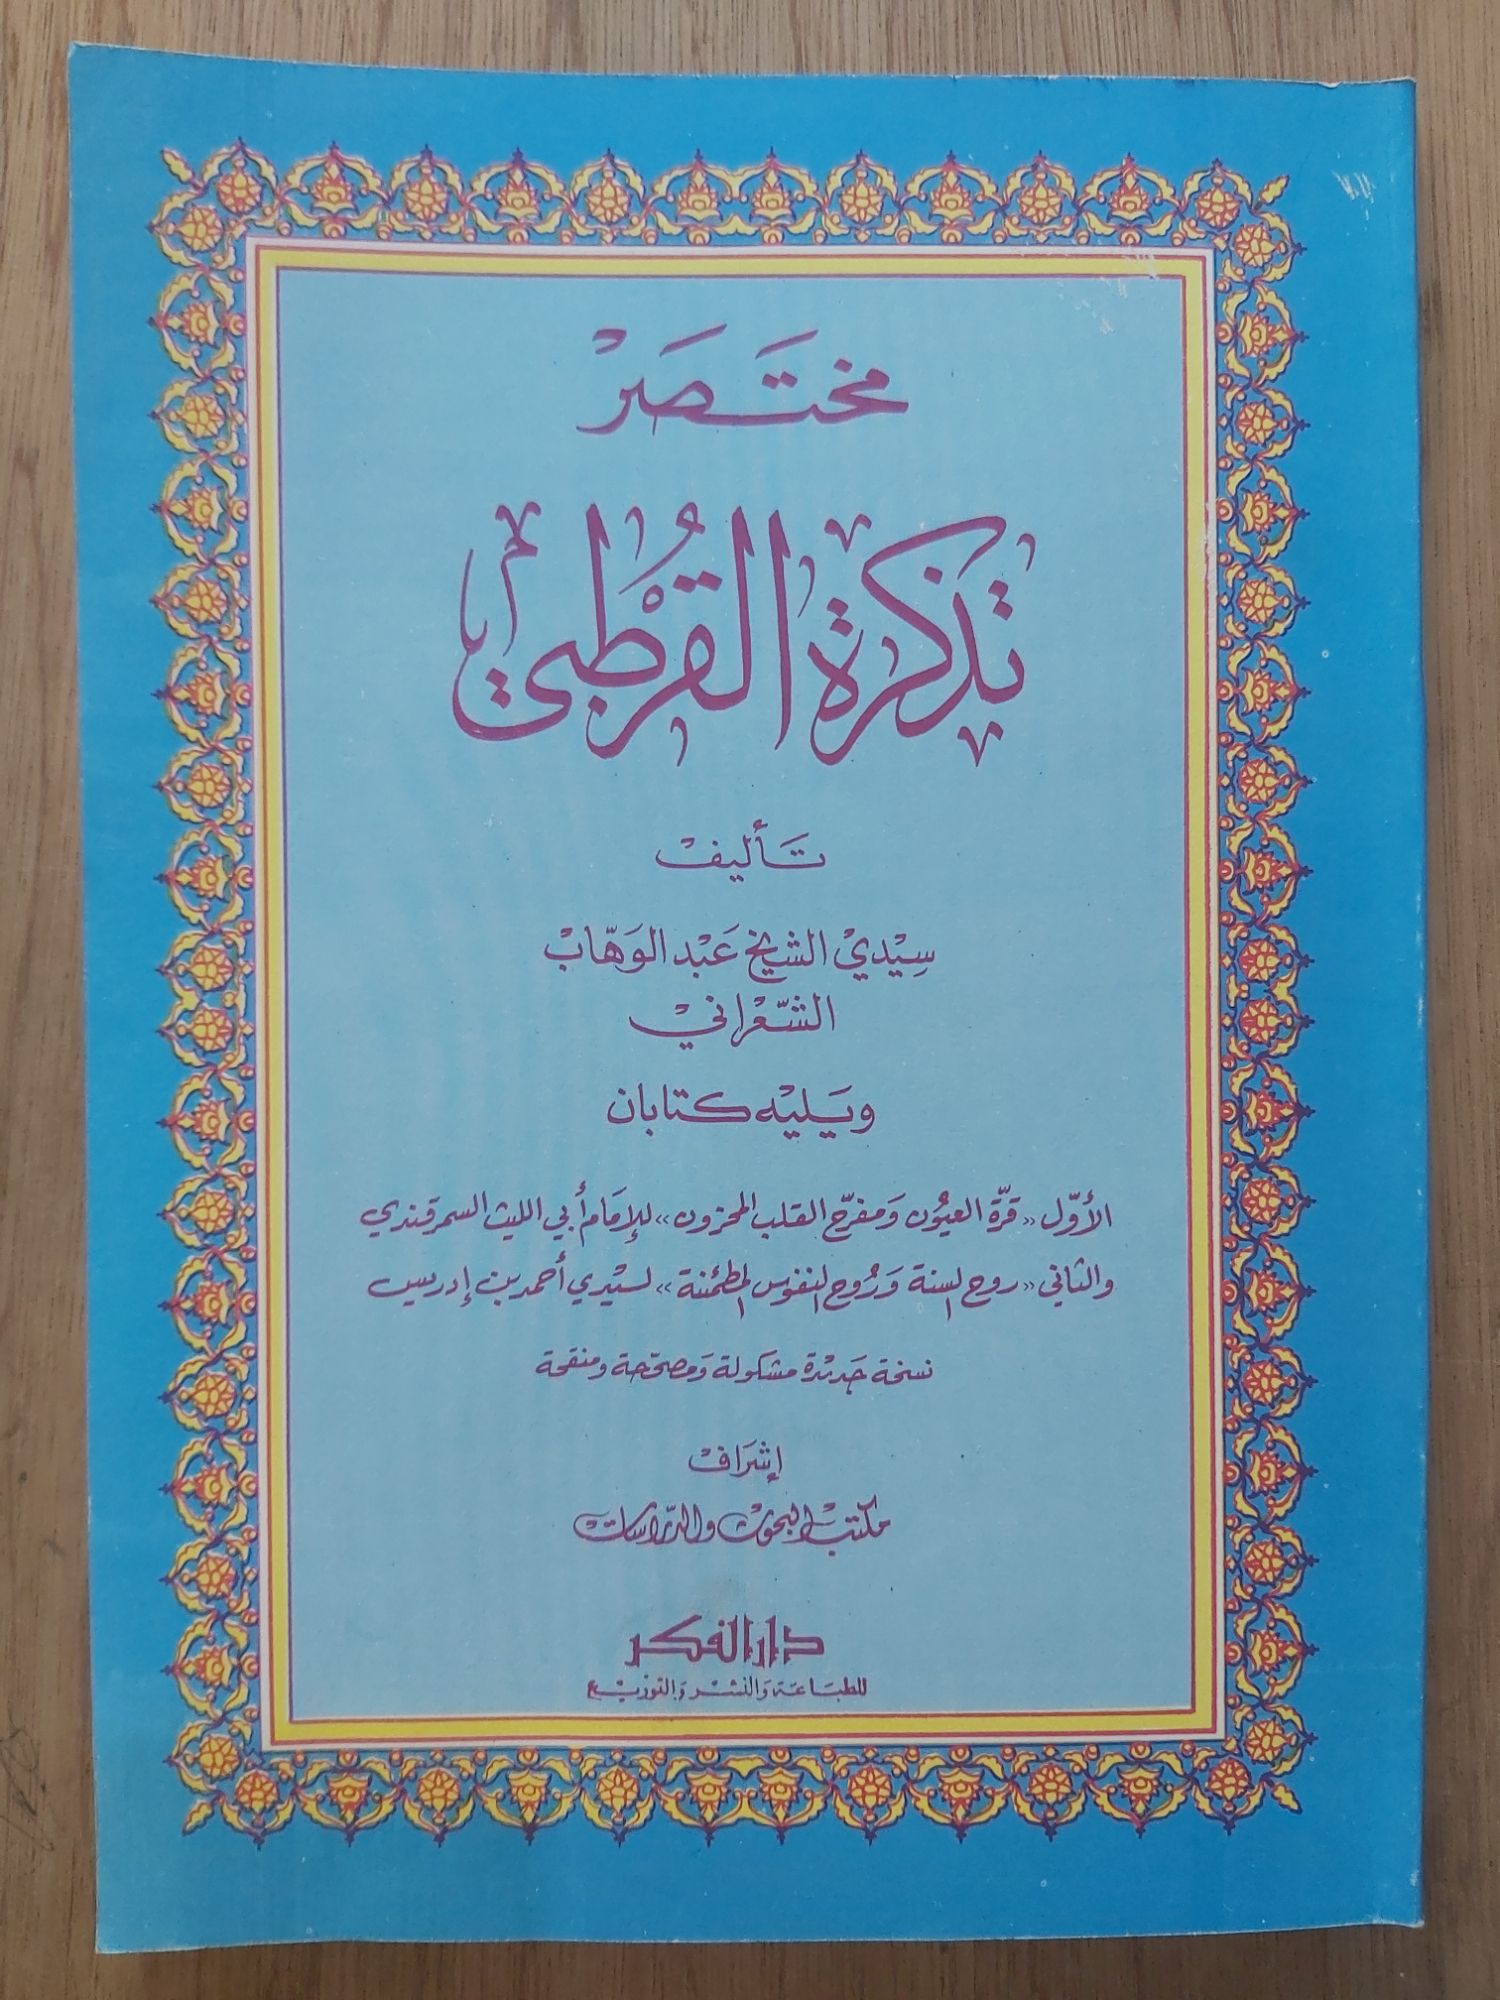 مختَصَرْ
تذكرة القُرْطبي
تَأليفْ
سِيْديْ الشيْخ عَبْد الوَهّابْ
الشّعْرانيْ
وَيَليْه كتابان
الأوّل «قرّة العيُون وَمفرّح القلب المحزون» للإمَام أبي الليث السمرقندي
والثاني «روح السنة وَرُوح النفوس المطمئنة» لسيْدي أحمد بن إدريس
نسخة جَديْدة مشكولة وَمصحّحة ومنقحة
إشرَافْ
مكتب البحوث والدّراسات
دار الفكر
للطبَاعَة وَالنشْر وَالتوزيْع